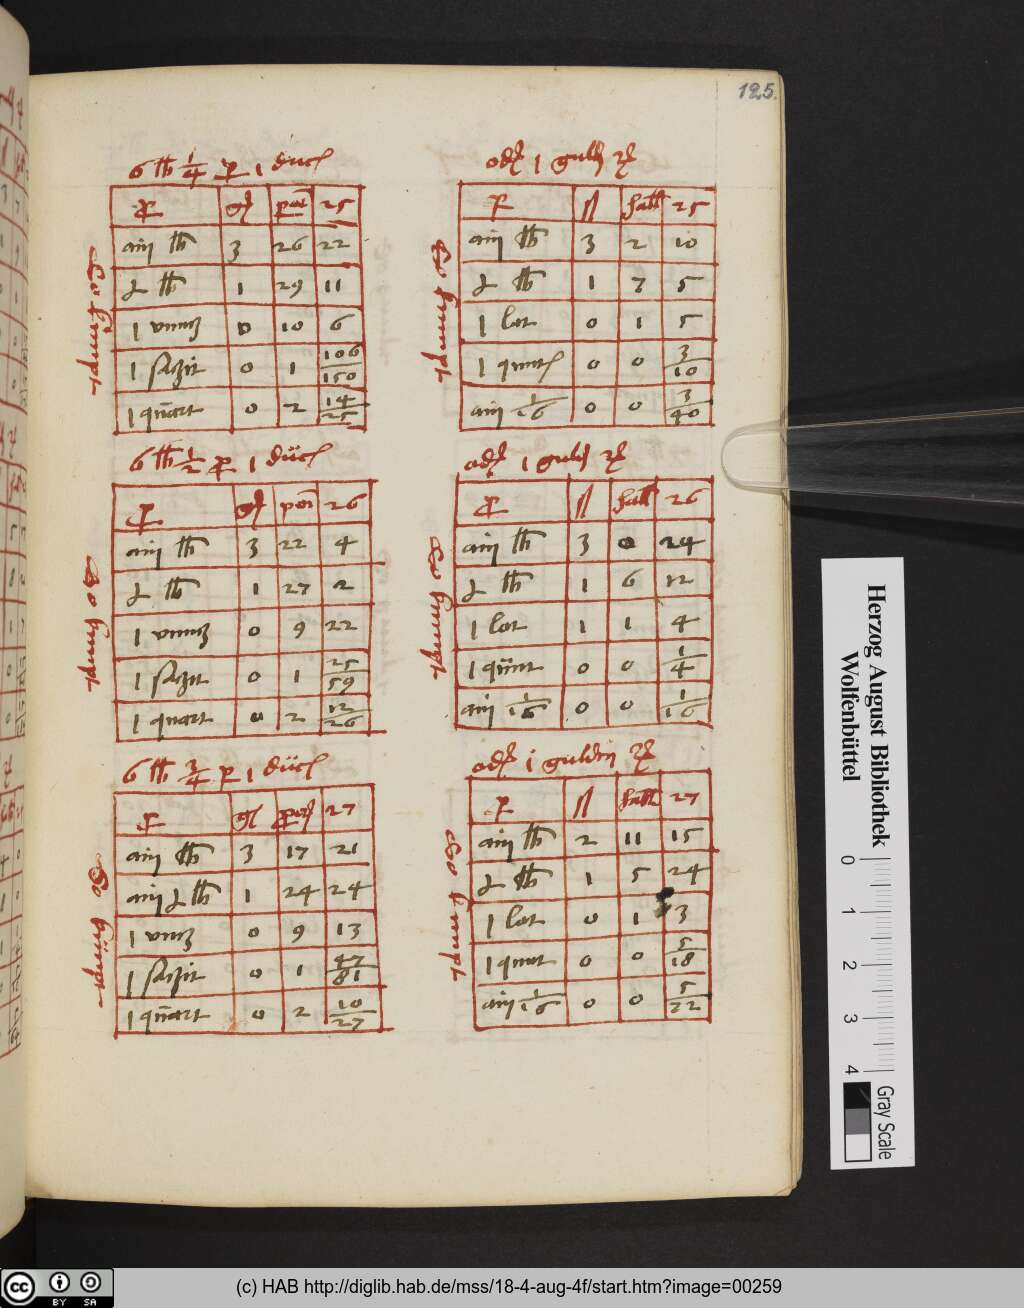 125.
6 lb 1/4 P 1 duc
P gl 25
ain lb 3 26 22
lb 1 29 11
1 vnntz 0 10 6
1 0 1 106/150
1 quart 0 2 14/25
So kumpt
od 1 guld
P hall 25
ain lb 3 2 10
lb 1 7 5
1 lot 0 1 5
1 quint 0 0 3/10
ain 1/16 0 0 3/40
So kumpt
6 lb 1/2 P 1 duc
P gl 26
ain lb 3 22 4
lb 1 27 2
1 vnntz 0 9 22
1 0 1 25/59
1 quart 0 2 12/26
So kumpt
od 1 guld
P hall 26
ain lb 3 0 24
lb 1 6 12
1 lot 1 1 4
1 quint 0 0 1/4
ain 1/16 0 0 1/16
So kumpt
6 lb 3/4 P 1 duc
P gl 27
ain lb 3 17 21
ain lb 1 24 24
1 vntz 0 9 13
1 0 1 47/81
1 quart 0 2 10/27
So kumpt
od 1 guldin
P hall 27
ain lb 2 11 15
lb 1 5 24
1 lot 0 1 3
1 quint 0 0 5/18
ain 1/16 0 0 5/72
So kumpt
Herzog August Bibliothek
Wolfenbüttel
0 1 2 3 4
Gray Scale
cc BY SA
(c) HAB http://diglib.hab.de/mss/18-4-aug-4f/start.htm?image=00259